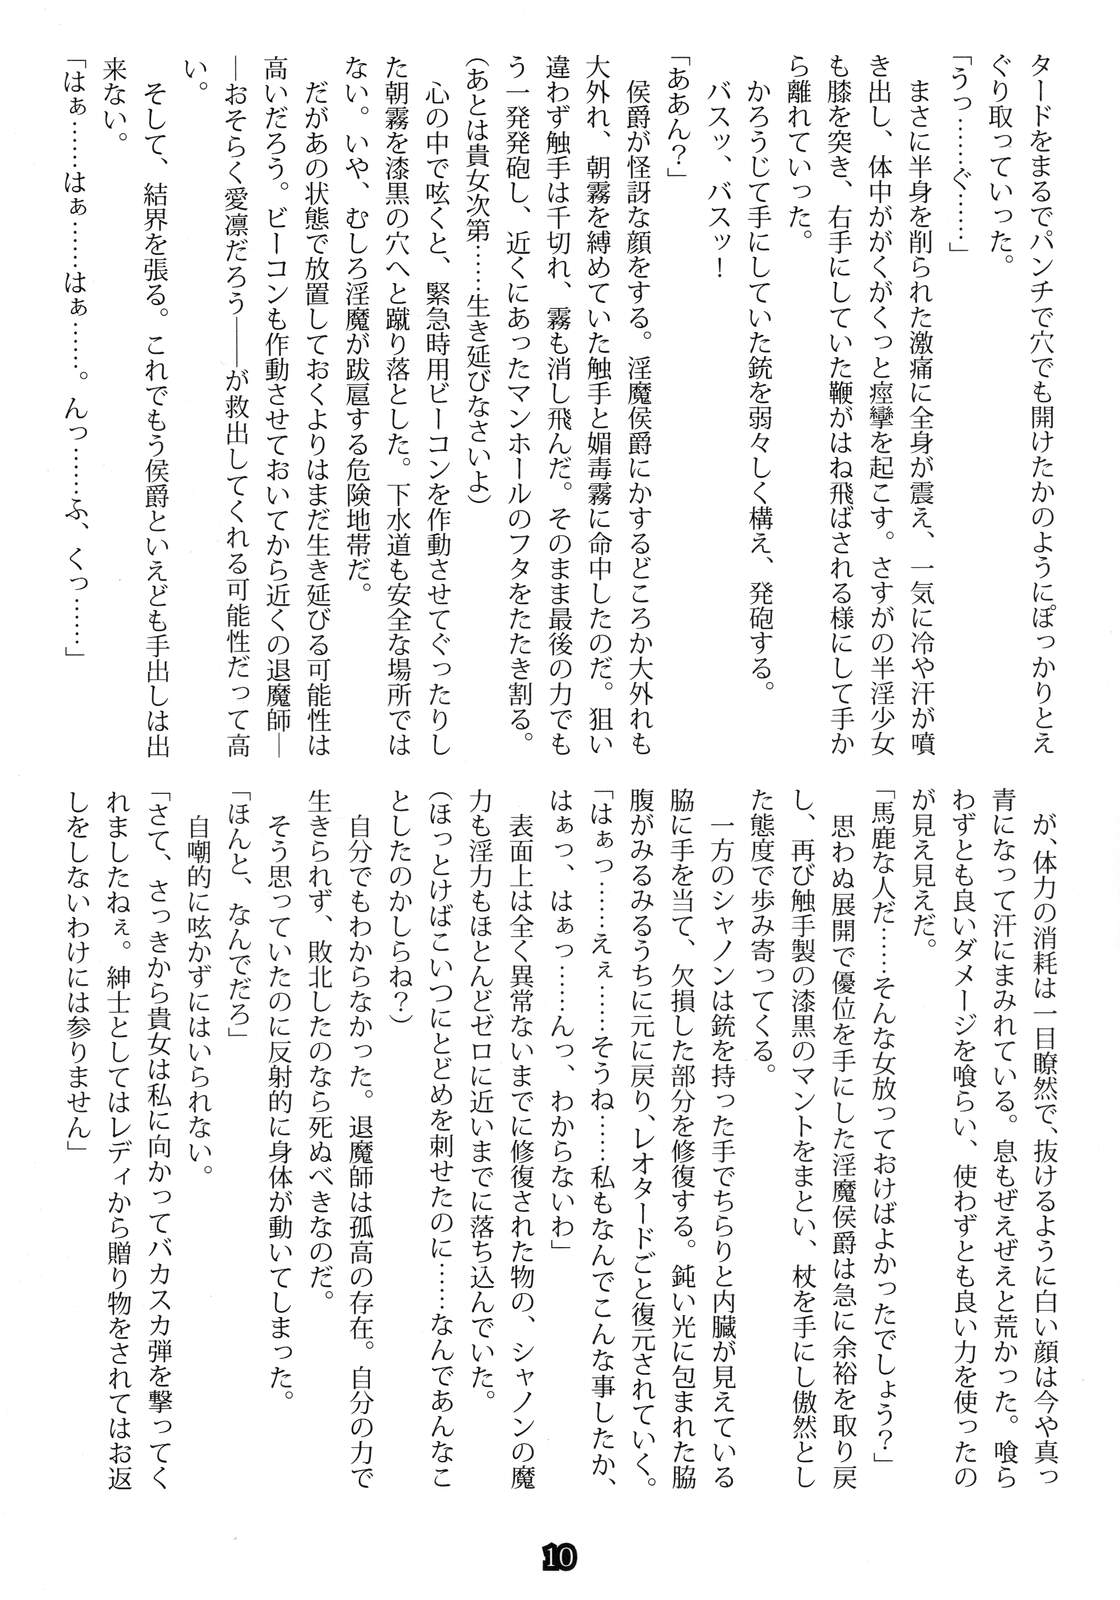 タードをまるでパンチで穴でも開けたかのようにぽっかりとえ
ぐり取っていった。
「うっ……ぐ……」
　まさに半身を削られた激痛に全身が震え、一気に冷や汗が噴
き出し、体中ががくがくっと痙攣を起こす。さすがの半淫少女
も膝を突き、右手にしていた鞭がはね飛ばされる様にして手か
ら離れていった。
　かろうじて手にしていた銃を弱々しく構え、発砲する。
　バスッ、バスッ！
「ああん？」
　侯爵が怪訝な顔をする。淫魔侯爵にかするどころか大外れも
大外れ、朝霧を縛めていた触手と媚毒霧に命中したのだ。狙い
違わず触手は千切れ、霧も消し飛んだ。そのまま最後の力でも
う一発発砲し、近くにあったマンホールのフタをたたき割る。
（あとは貴女次第……生き延びなさいよ）
　心の中で呟くと、緊急時用ビーコンを作動させてぐったりし
た朝霧を漆黒の穴へと蹴り落とした。下水道も安全な場所では
ない。いや、むしろ淫魔が跋扈する危険地帯だ。
　だがあの状態で放置しておくよりはまだ生き延びる可能性は
高いだろう。ビーコンも作動させておいてから近くの退魔師―
―おそらく愛凛だろう――が救出してくれる可能性だって高
い。
　そして、結界を張る。これでもう侯爵といえども手出しは出
来ない。
「はぁ……はぁ……はぁ……。んっ……ふ、くっ……」
　が、体力の消耗は一目瞭然で、抜けるように白い顔は今や真っ
青になって汗にまみれている。息もぜえぜえと荒かった。喰ら
わずとも良いダメージを喰らい、使わずとも良い力を使ったの
が見え見えだ。
「馬鹿な人だ……そんな女放っておけばよかったでしょう？」
　思わぬ展開で優位を手にした淫魔侯爵は急に余裕を取り戻
し、再び触手製の漆黒のマントをまとい、杖を手にし傲然とし
た態度で歩み寄ってくる。
　一方のシャノンは銃を持った手でちらりと内臓が見えている
脇に手を当て、欠損した部分を修復する。鈍い光に包まれた脇
腹がみるみるうちに元に戻り、レオタードごと復元されていく。
「はぁっ……えぇ……そうね……私もなんでこんな事したか、
はぁっ、はぁっ……んっ、わからないわ」
　表面上は全く異常ないまでに修復された物の、シャノンの魔
力も淫力もほとんどゼロに近いまでに落ち込んでいた。
（ほっとけばこいつにとどめを刺せたのに……なんであんなこ
としたのかしらね？）
　自分でもわからなかった。退魔師は孤高の存在。自分の力で
生きられず、敗北したのなら死ぬべきなのだ。
　そう思っていたのに反射的に身体が動いてしまった。
「ほんと、なんでだろ」
　自嘲的に呟かずにはいられない。
「さて、さっきから貴女は私に向かってバカスカ弾を撃ってく
れましたねぇ。紳士としてはレディから贈り物をされてはお返
しをしないわけには参りません」
10